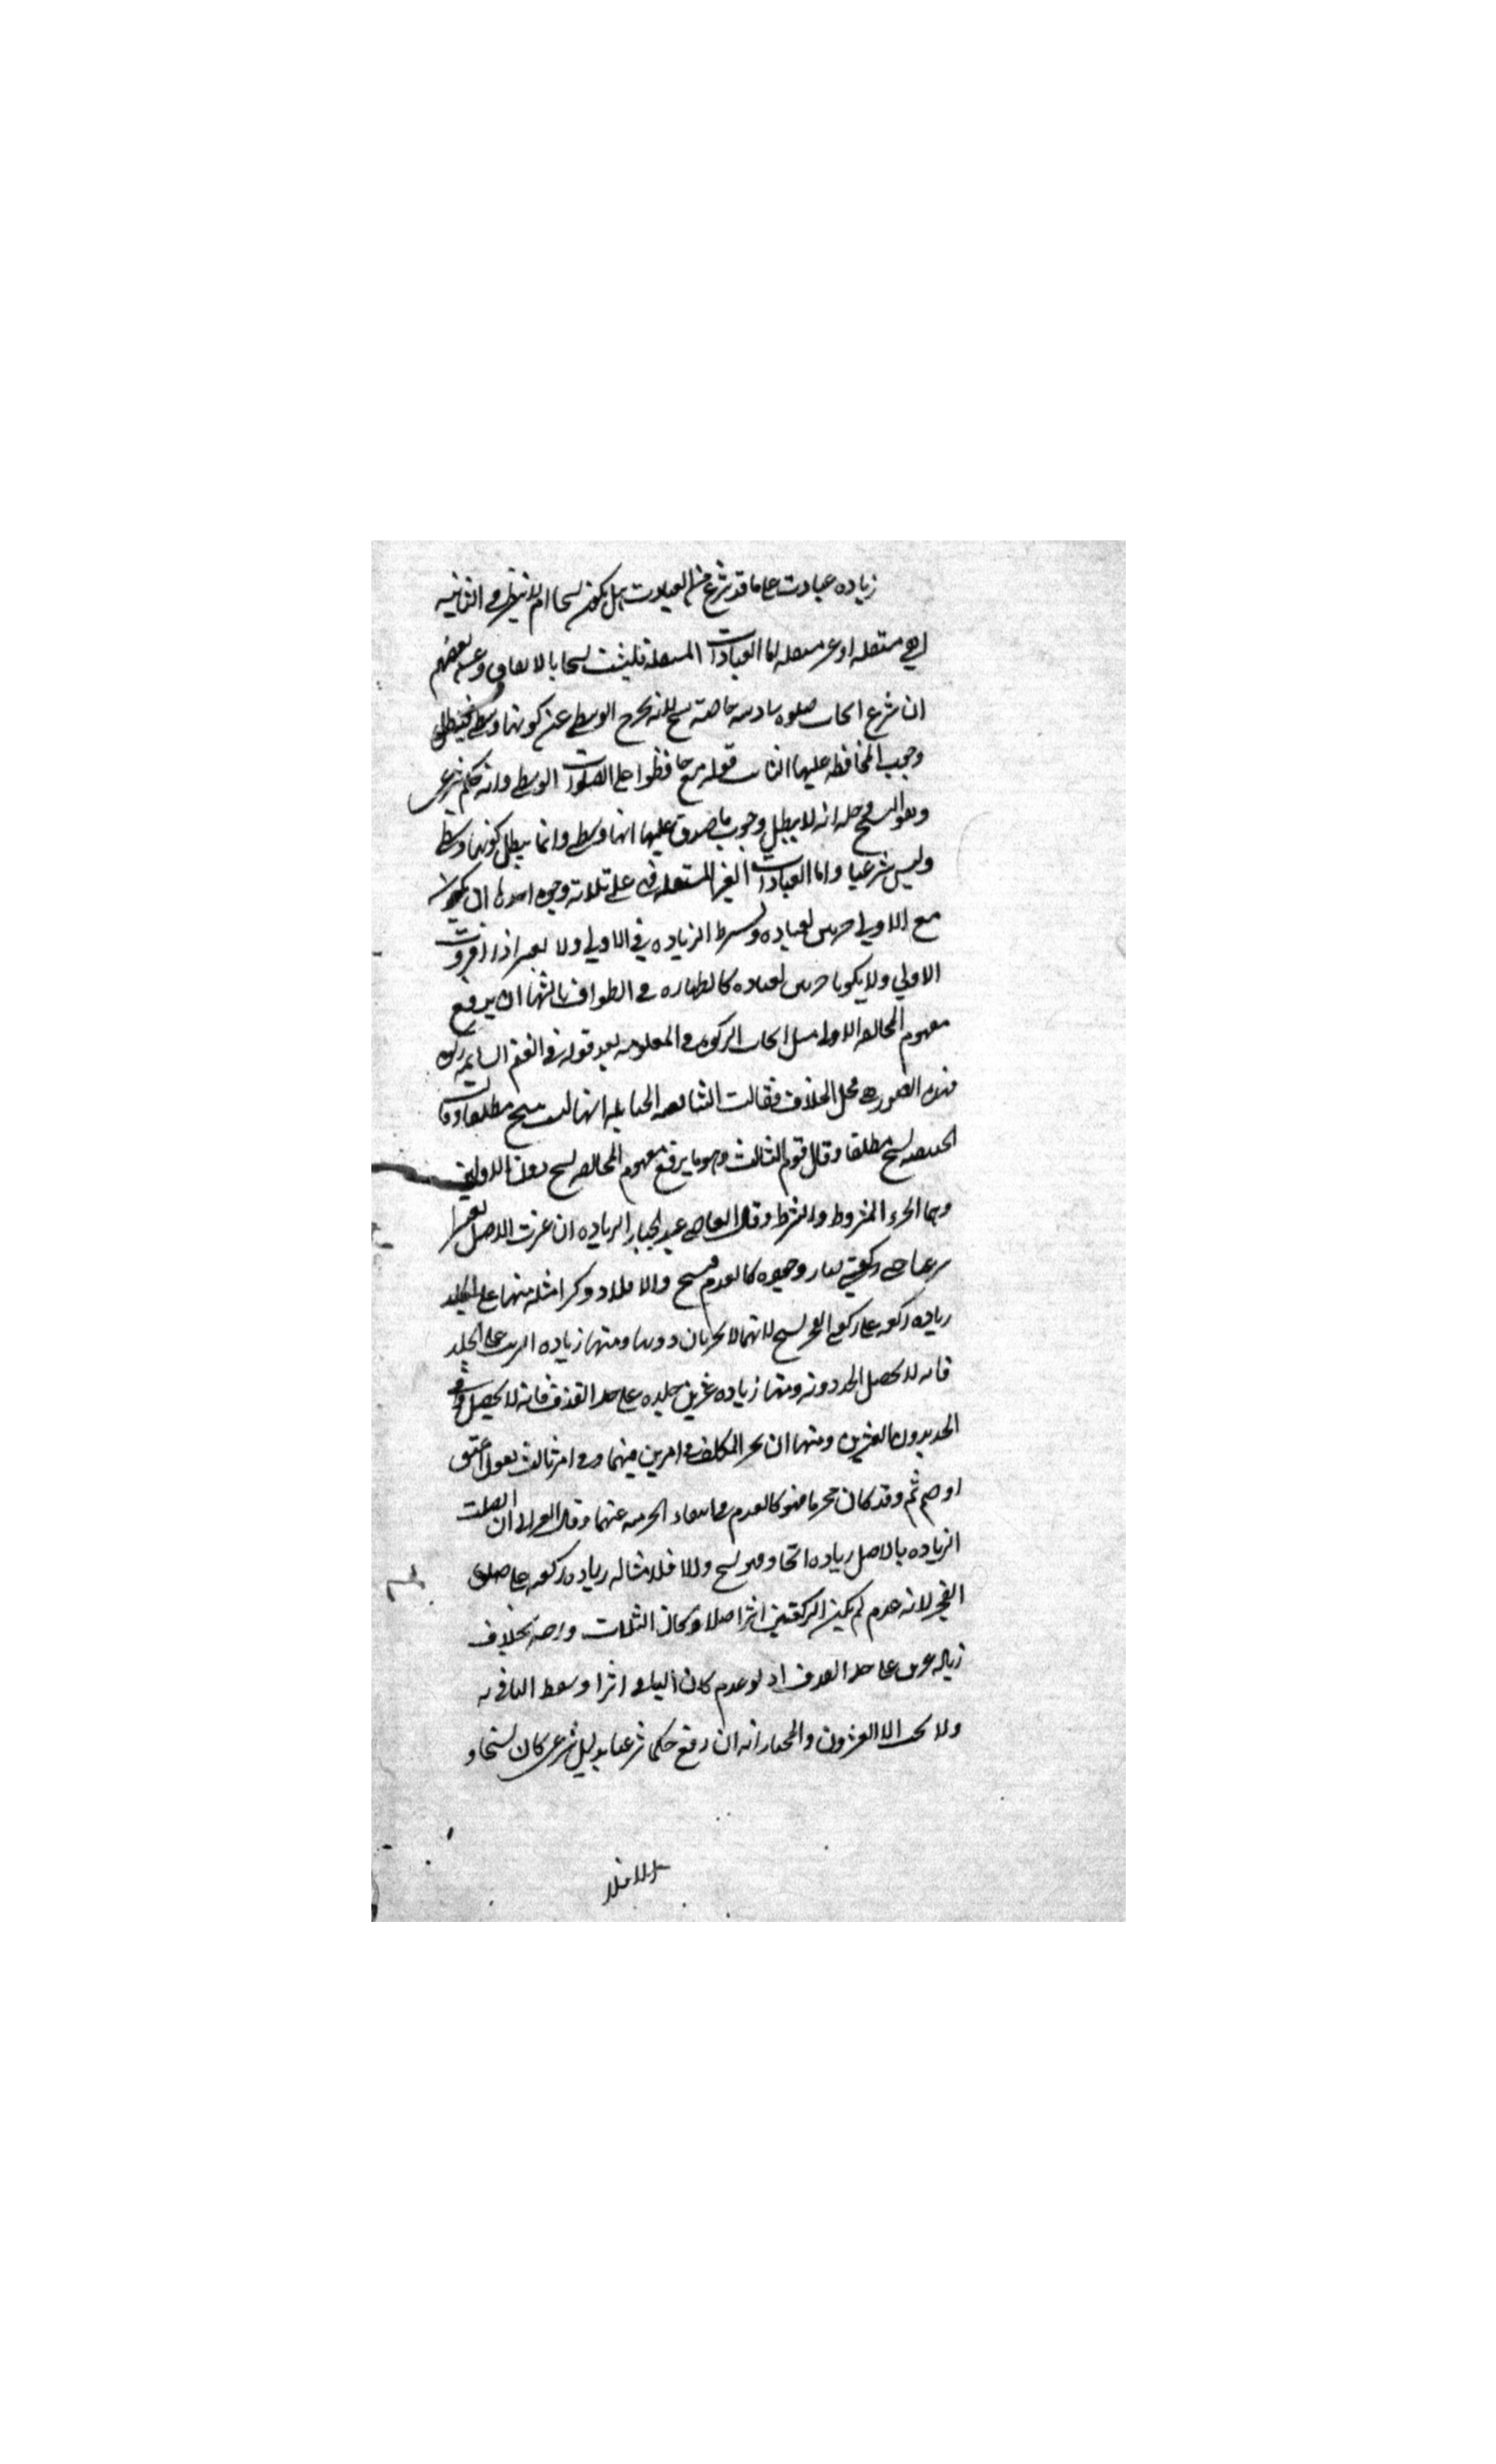 زياده عبادت على ما قد شرع من العبادت هل يكون نسخا ام لا ينظر في الثانيه
اهي مستقله او غير مستقله اما العبادات المستقله فليست نسخا بالاتفاق وعن بعضهم
ان شرع ايجاب صلوه سادسه خاصة نسخ لانه يخرج الوسطى عن كونها وسطى فيبطل
وجوب المحافظه عليها الثابت قوله تع حافظوا على الصلوات الوسطى وانه حكم شرعي
وهو النسخ وحله انه لا يبطل وجوب ما صدق عليها انها وسطى وانما يبطل كونها وسطى
وليس شرعيا واما العبادات الغير المستقله فهي على ثلاثة وجوه احدها ان يكون
مع الاولى جزئين لعباده وشرط الزياده في الاولى ولا يعتبر اذا افردت
الاولى ولا يكونا جزئين لعباده كالطهاره في الطواف ثالثها ان يرفع
مفهوم المخالفه الاولى مثل ايجاب الزكوه في المعلوفه بعد قوله في الغنم السايمه زكوة
فهذه الصوره هي محل الخلاف فقالت الشافعيه الحنابله انها ليست بنسخ مطلقا وقالت
الحنفيه نسخ مطلقا وقال قوم الثالث وهو ما يرفع مفهوم المخالفه نسخ دون الاولين
وهما الجزء المشروط والشرط وقال القاضي عبد الجبار الزياده ان غيرت الاصل تغييرا
شرعيا حتى صار وجوده كالعدم فنسخ والا فلا وذكر امثله منها على
زياده ركعه على ركعتي الفجر نسخ لانهما لا يجزيان دونها ومنها زياده التغريب على الجلد
فانه لا يحصل الحد دونه ومنها زياده عشرين جلده على حد القذف فانه لا يحصل
الحد بدون العشرين ومنها ان يخير المكلف في امرين منهما وفي امر ثالث يقول اعتق
او صم ثم وقد كان محرما فهو كالعدم في انتفاء الحرمه عنهما وقال الغزالي ان اتصلت
الزياده بالاصل زياده اتحاد فهو نسخ والا فلا مثاله زياده ركعه على صلوة
الفجر لانه عدم لم يكن الركعتين اثرا اصلا وكان الثلاث واجبه بخلاف
زياده عشرين على حد القذف اذ لو عدم كان الباقي اثرا وسقط الباقي به
ولا يجب الا العشرون والمختار انه ان رفع حكما شرعيا بدليل شرعي كان نسخا و
والا فلا